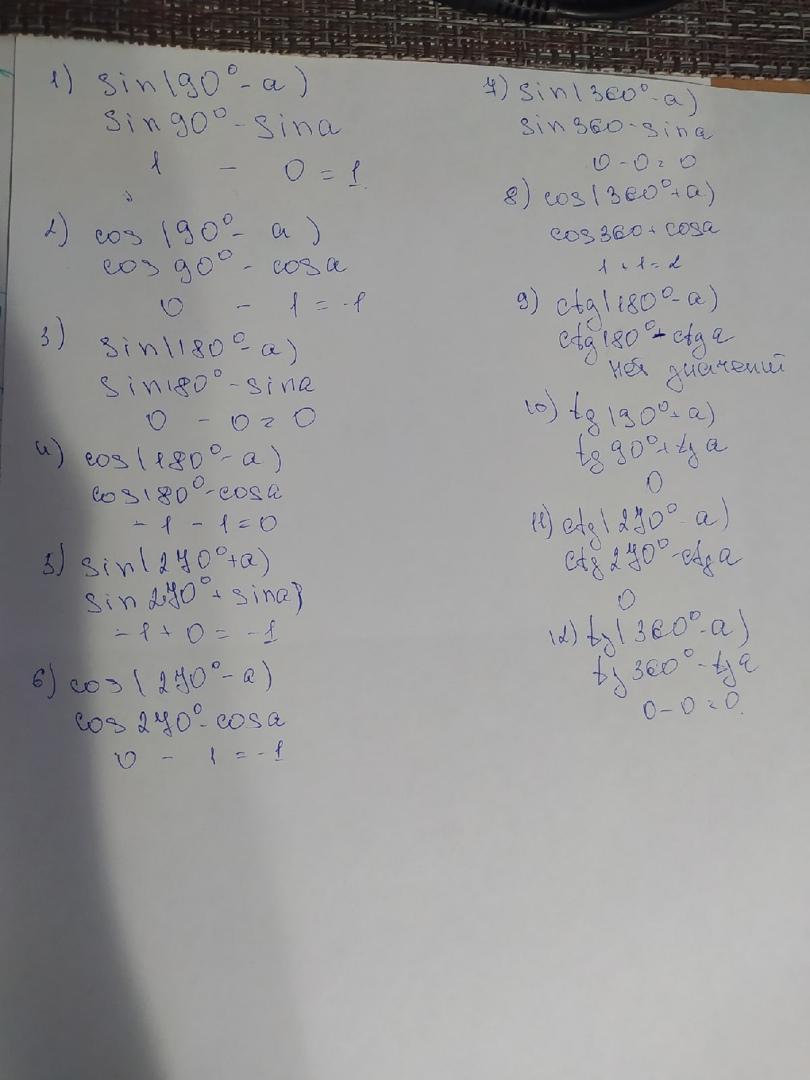 1) sin(90°-a)
sin90°-sina
1 - 0 = 1
2) cos(90°- a)
cos 90° - cosa
0 - 1 = -1
3)
sin(180°-a)
sin180°-sina
0 - 0 = 0
4) cos(180°-a)
cos180°-cosa
-1 - 1=0
5) sin(270°+a)
sin270°+sina)
-1 + 0 = -1
6) cos(270°-a)
cos270°-cosa
0 - 1 = -1
7) sin(360°-a)
sin360-sina
0-0=0
8) cos(360°+a)
cos360+cosa
1+1=2
9) ctg(180°-a)
ctg180°-ctga
нет значений
10) tg(90°+a)
tg90°+tga
0
11) ctg(270°-a)
ctg270°-ctga
0
12) tg(360°-a)
tg360°-tga
0-0=0.